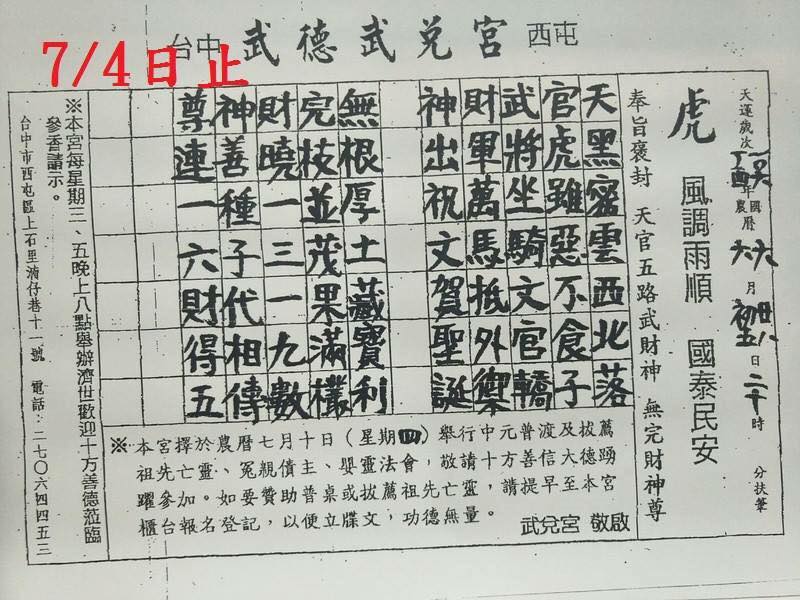 7/4日止
台中 武德武兌宮 西屯
天運歲次丁酉年 國農曆 六六 月 廿八初五 日 二十時 分扶筆
虎 風調雨順 國泰民安
奉旨褒封 天官五路武財神 無完財神尊
天黑密雲西北落
官虎雖惡不食子
武將坐騎文官轎
財軍萬馬抵外禦
神出祝文賀聖誕
無根厚土藏寶利
完枝並茂果滿欉
財曉一三一九數
神善種子代相傳
尊連一六財得五
※本宮擇於農曆七月十日（星期四）舉行中元普渡及拔薦
祖先亡靈、冤親債主、嬰靈法會，敬請十方善信大德踴
躍參加。如要贊助普桌或拔薦祖先亡靈，請提早至本宮
櫃台報名登記，以便立牒文，功德無量。
武兌宮 敬啟
※本宮每星期三、五晚上八點舉辦濟世歡迎十方善德蒞臨
參香請示。
台中市西屯區上石里湳仔巷十一號 電話：二七○六四四五三